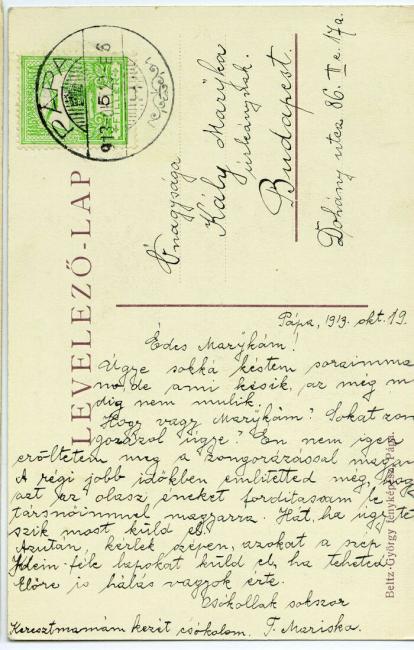 PÁPA
913
5 FILLÉR
LEVELEZŐ-LAP
Őnagysága
Kály Maryka
úrleánynak.
Budapest.
Dohány utca 86. II e. 17a.
Pápa, 1913. okt. 19.
Édes Marykám!
Ugye sokká késtem soraimma
no, de ami késik, az még m
dig nem mulik.
Hogy vagy Marykám? Sokat zon
gorázol ugye? Én nem igen
erőltetem meg a zongorázással magam
A régi jobb időkben emlitetted még, hog
azt az olasz éneket forditassam le
társnőimmel magyarra. Hát, ha ugy tet
szik most küld el.
Azután, kérlek szépen, azokat a szép
féle lapokat küld el, ha teheted
Előre is hálás vagyok érte.
Csókollak sokszor
Keresztmamám kezét csókolom. T. Mariska.
Beltz György fényképész Pápa.